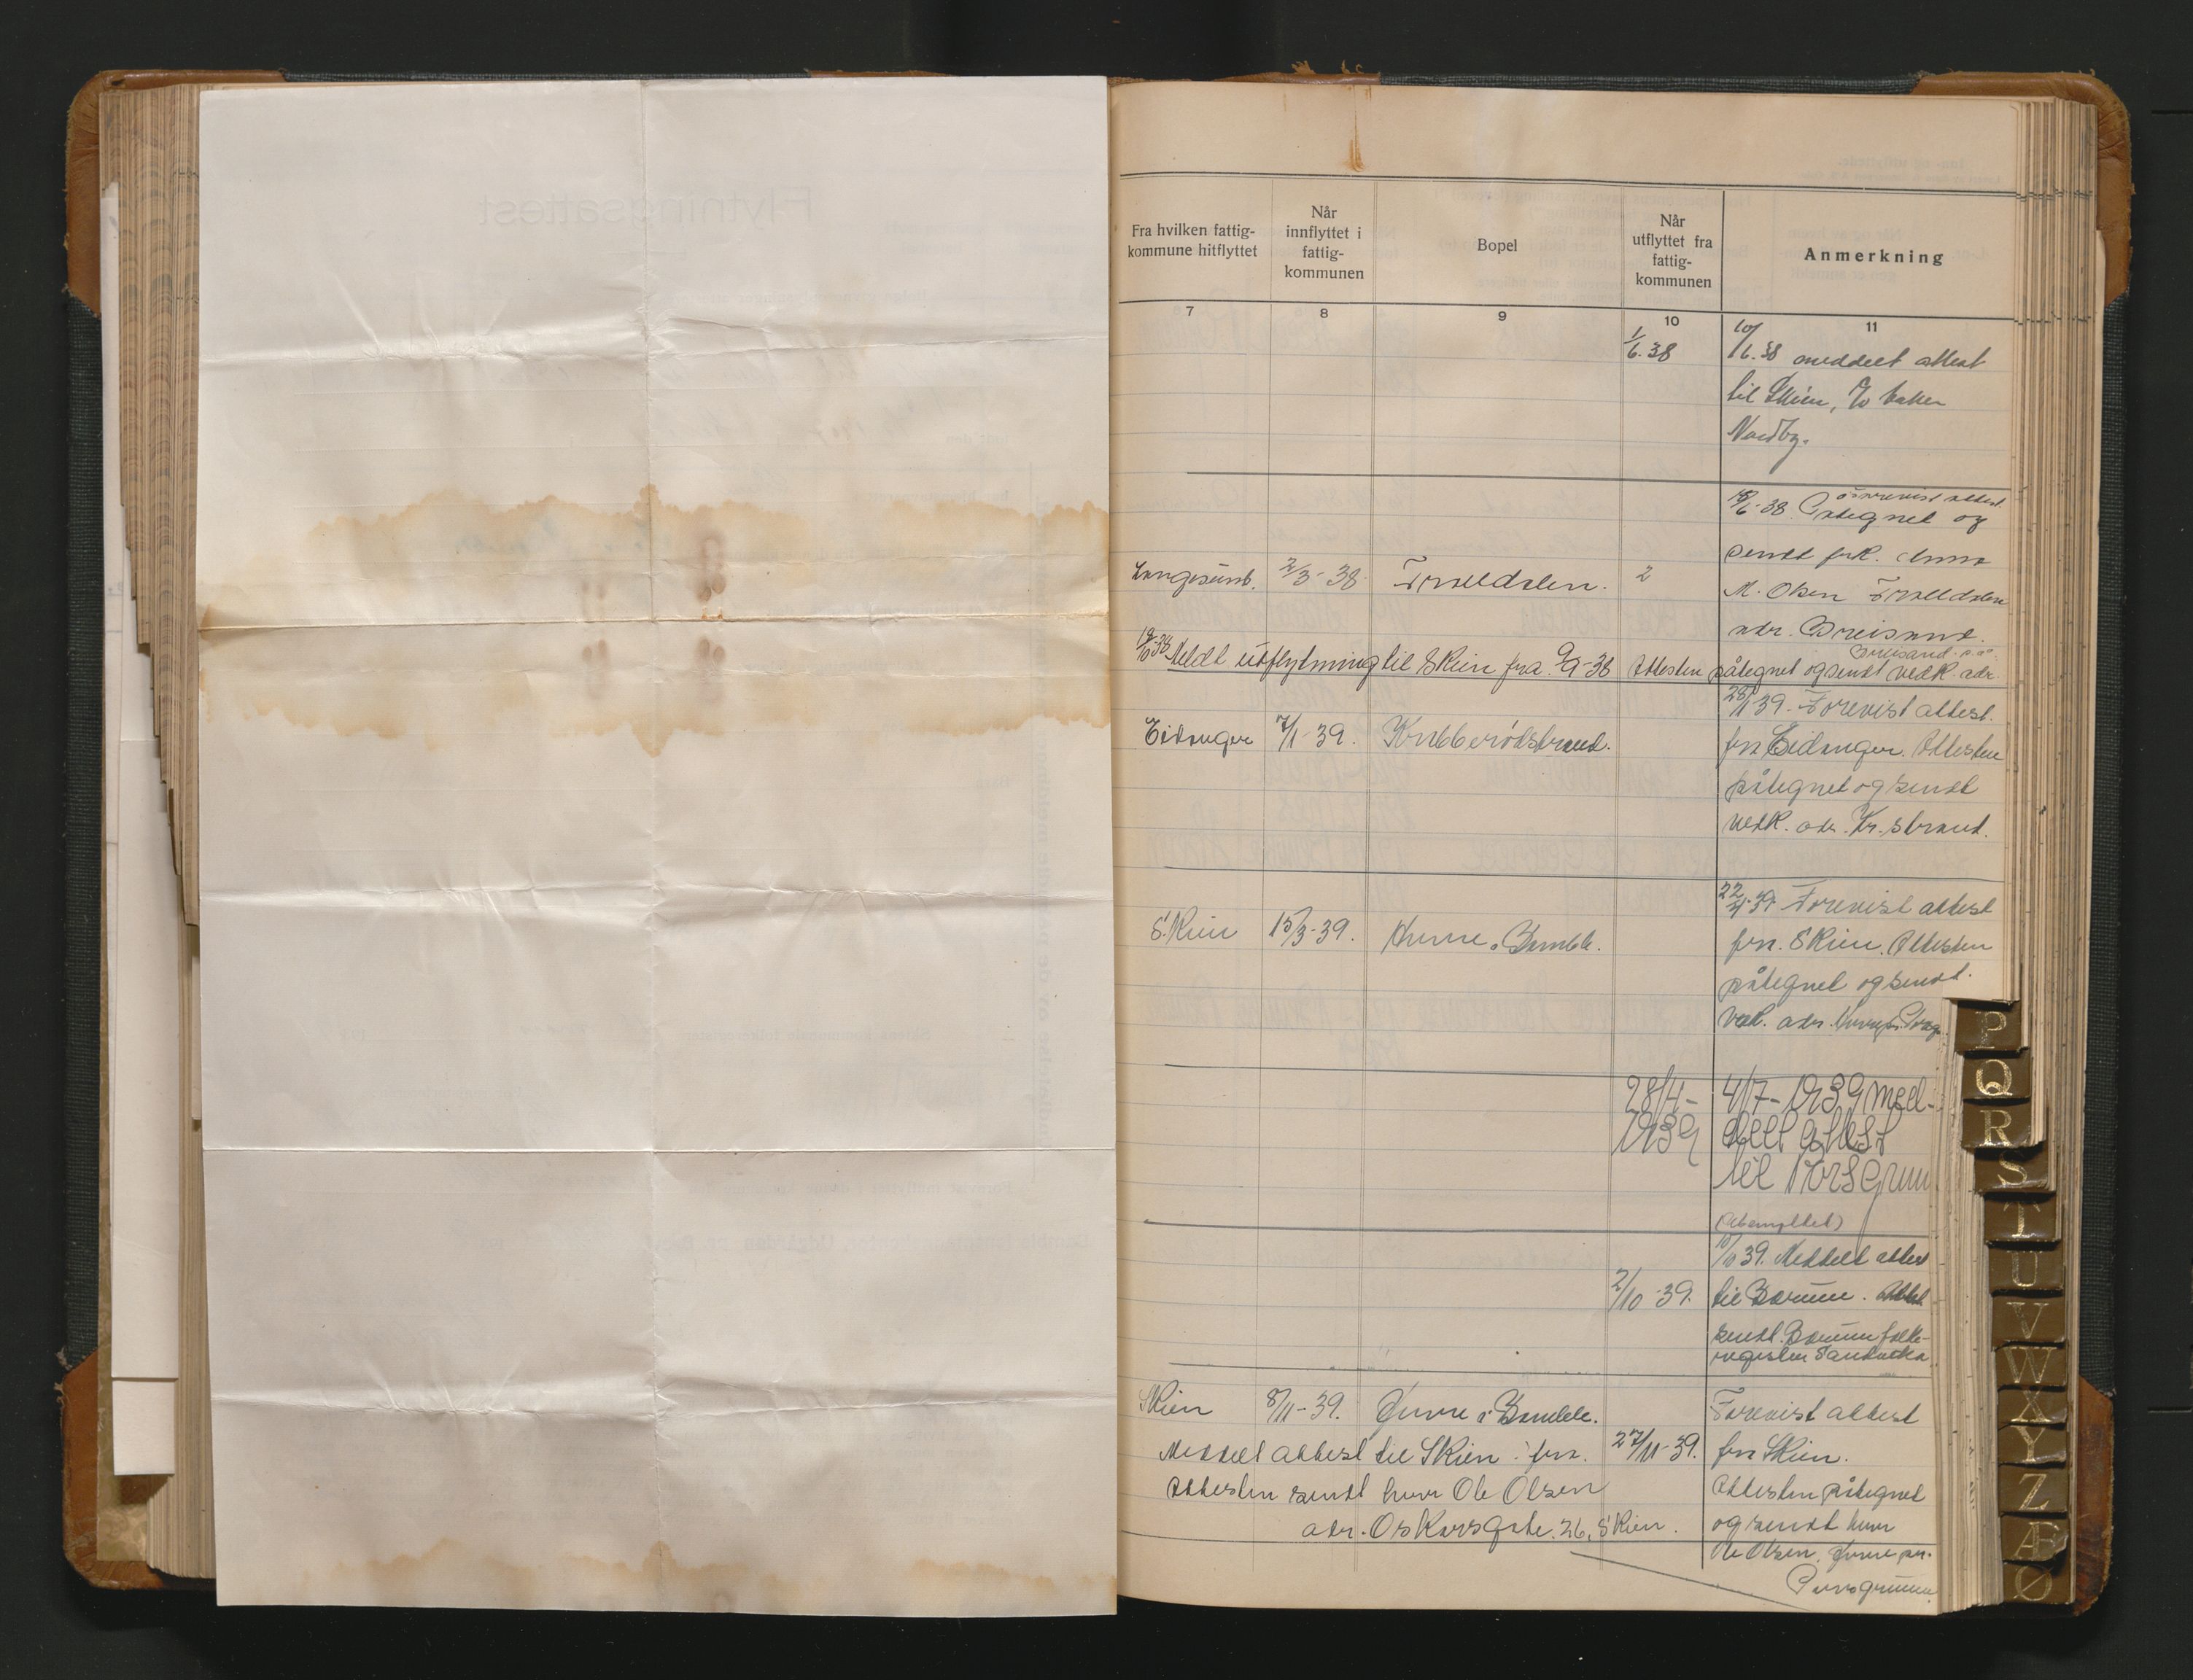 Fra hvilken fattig-
kommune hitflyttet
Når
innflyttet i
fattig-
kommunen
Bopel
Når
utflyttet fra
fattig-
kommunen
Anmerkning
7 8 9 10 11
1/6.38 10/6.38 meddelt attest
til Skien,
Nordby.
18/6-38. Påtegnet og
forevist attest.
sendt frk. Anna
Langesund. 2/3-38. Trolldalen. 2 M. Olsen Trolldalen
adr. Breisand.
19/10-38 Meldt utflytning til Skien fra 9/9-38 Attesten påtegnet og sendt vedk. adr.
Breisand p.å.
28/1 39. Forevist attest.
Eidanger 7/1-39. Krabberødstrand. fra Eidanger. Attesten
påtegnet og sendt
vedk. adr. Kr. strand.
22/4-39. Forevist attest
Skien 15/3-39. Herre i Bamble. fra Skien. Attesten
påtegnet og sendt.
vedk. adr. Herre pr. Porsg.
28/4-
1939
4/7-1939 med-
delt attest
til Porsgrunn
(Ubenyttet)
10/10 39. Meddelt attest
2/10-39. til Bærum. Attest
sendt Bærum folke-
register Sandvika
Skien 8/11-39. Herre i Bamble. Forevist attest
Meddelt attest til Skien fra. 27/11-39. fra Skien.
Attesten sendt herr Ole Olsen Attesten påtegnet
adr. Oskarsgate. 26, Skien. og sendt herr
Ole Olsen. Herre pr.
Porsgrunn.
P
Q
R
S
T
U
V
W
X
Y
Z
Æ
Ø